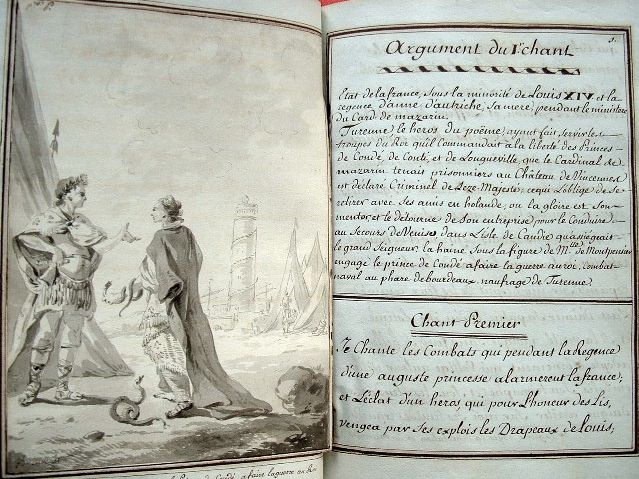 Argument du 1r chant
Etat de la france, sous la minorité de Louis XIV et la
regence d'anne d'autriche, sa mere; pendant le ministere
du Card. de mazarin.
Turenne, le heros du poëme, ayant fait servir les
troupes du Roi qu'il Commandait a la liberté des Princes
de Condé, de Conti, et de Longueville, que le Cardinal de
mazarin tenait prisonniers au Château de Vincennes
est declaré Criminel de Leze-Majesté; ce qui l'oblige de Se
retirer avec Ses amis en holande, ou la gloire est Son
mentor, et le detourne de Son entreprise, pour le Conduire
au Secours de Venise, dans L'isle de Candie qu'assiégeait
le grand Seigneur. la haine Sous la figure de Mlle de Montpensier
engage le prince de Condé a faire la guerre au roi. Combat
naval au phare de bourdeaux. naufrage de Turenne.
Chant Premier
Je Chante les Combats qui pendant la Regence
d'une auguste princesse alarmerent la france;
et L'éclat d'un heros, qui pour L'honeur des Lis,
vengea par Ses explois les Drapeaux de Louis;
le Prince de Condé a faire la guerre au Roi